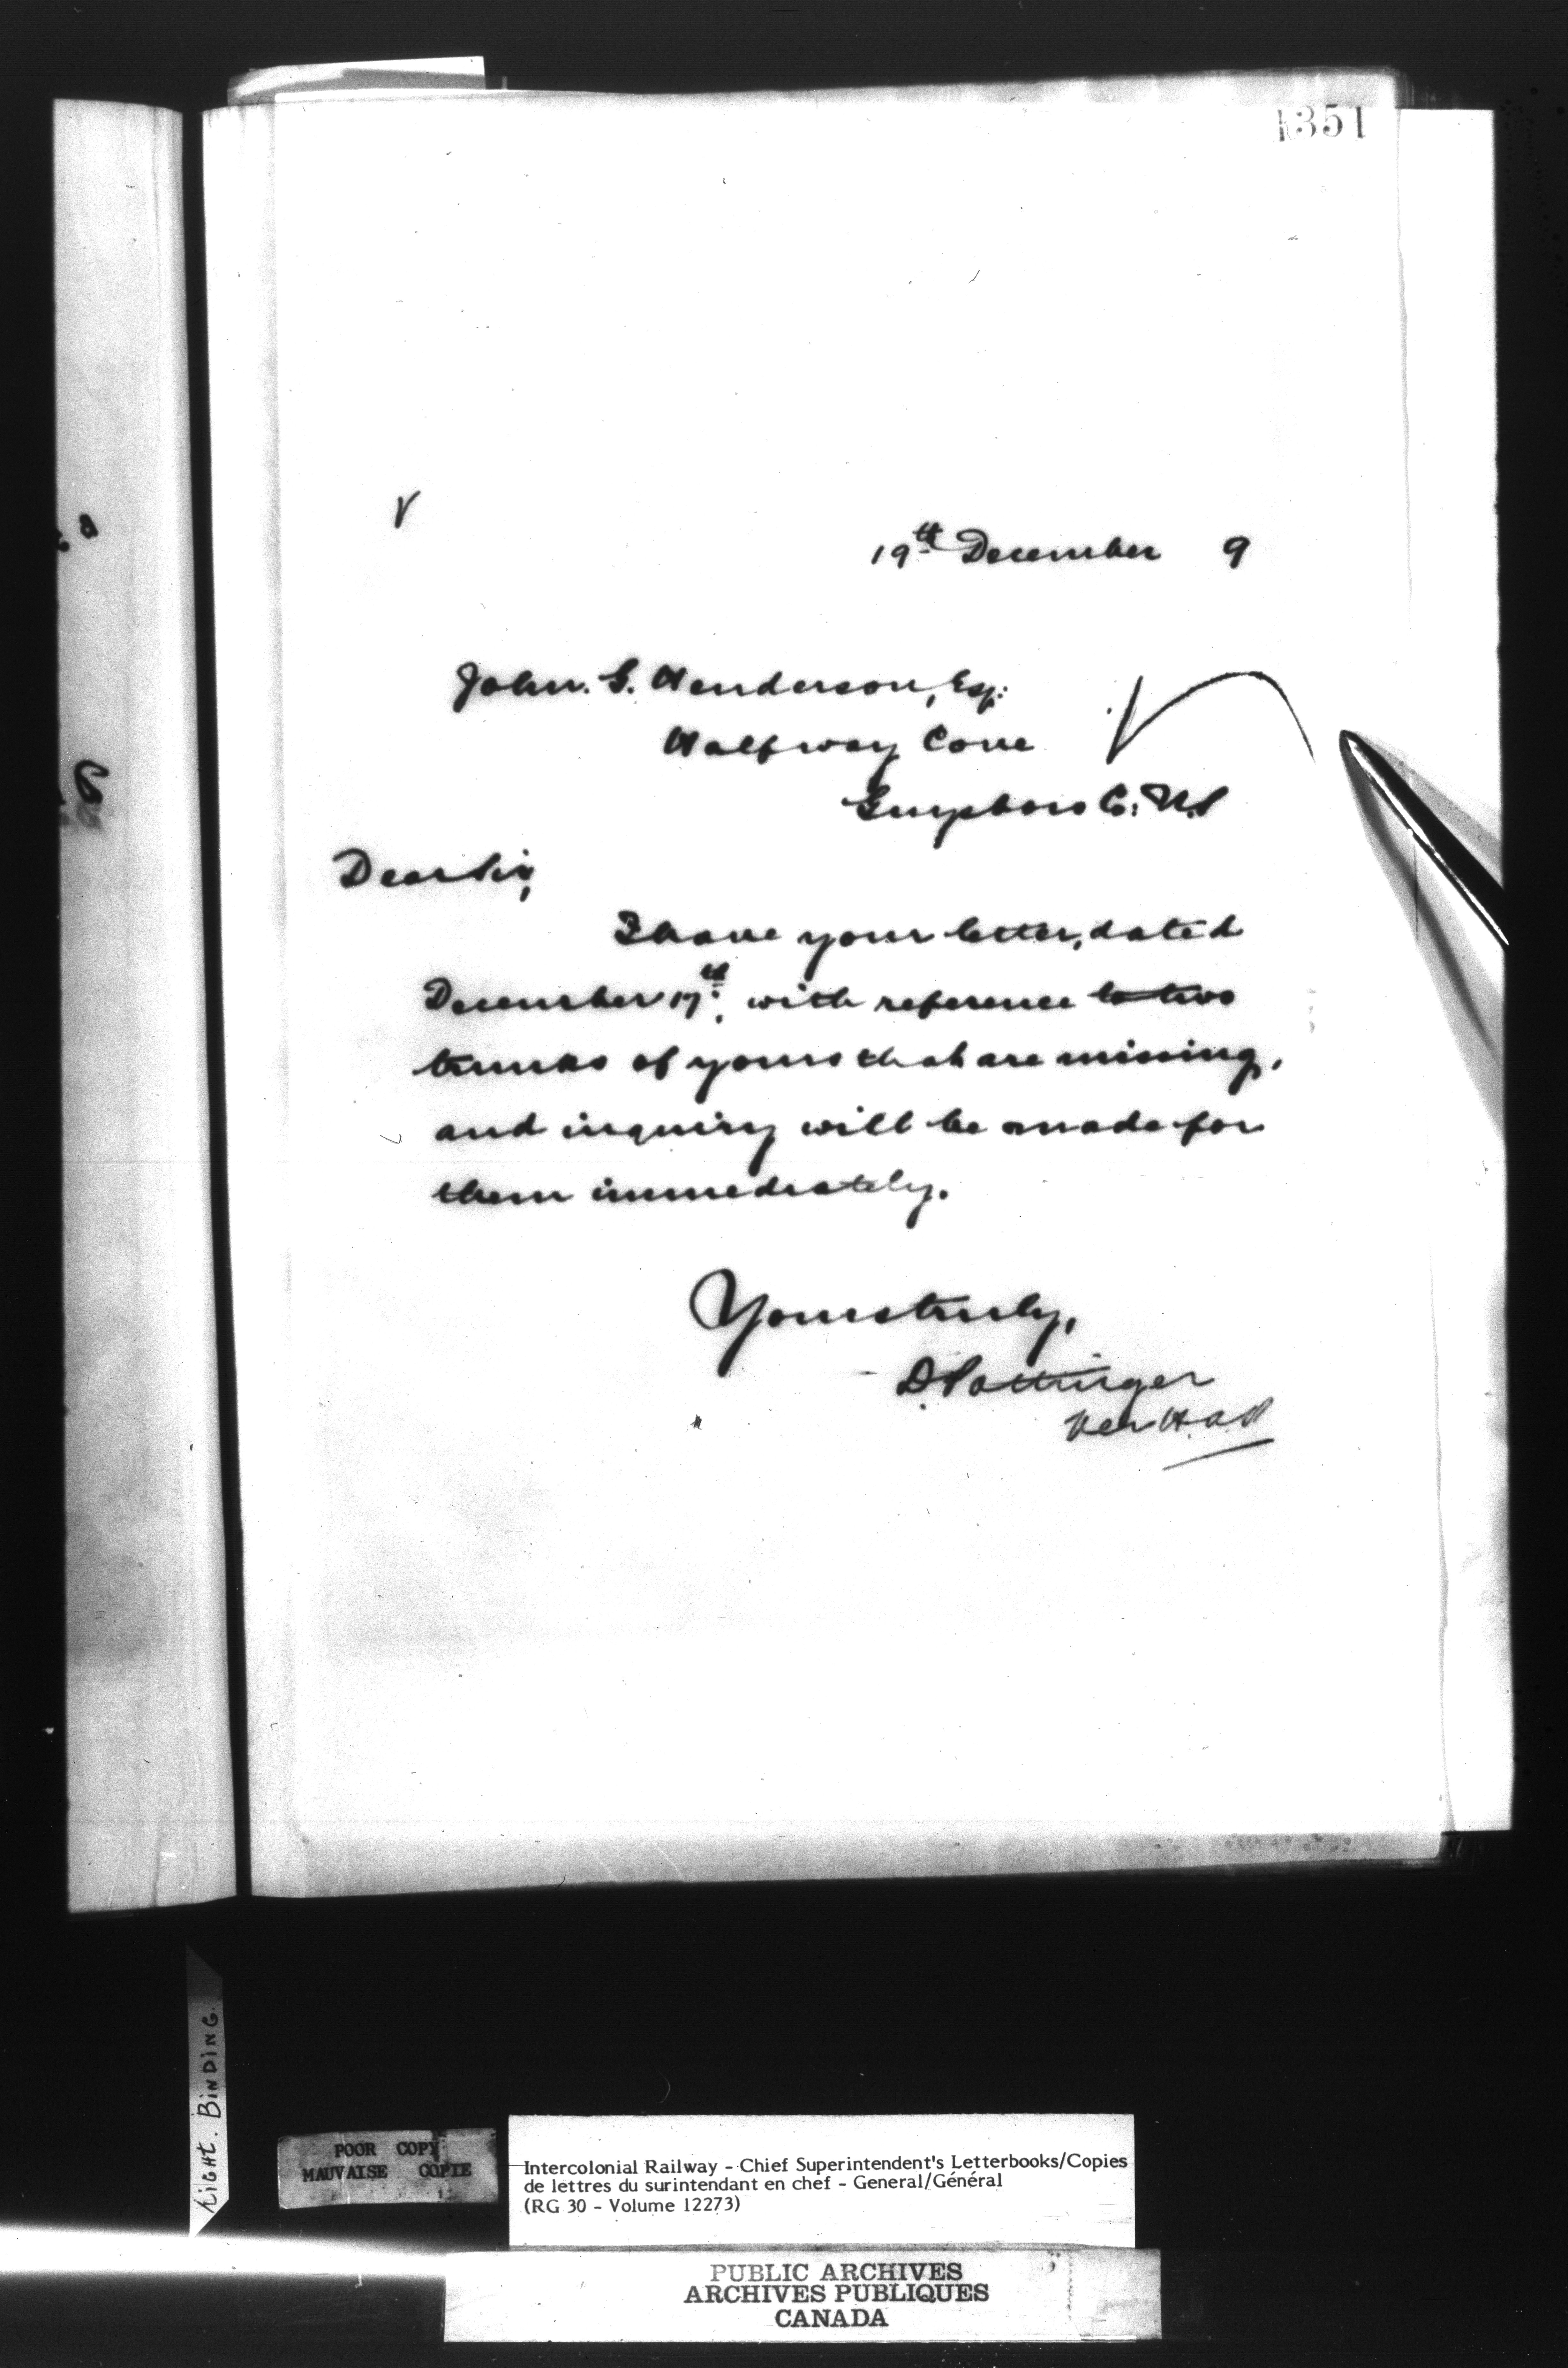 1351
19th December 9
John. G. Henderson, Esq:
Halfway Cove
Guysboro Co: N.S
Dear Sir,
I have your letter, dated
December 17th, with reference to two
trunks of yours that are missing,
and inquiry will be made for
them immediately.
Yours truly,
D. Pottinger
Per H.A.P
TIGHT. BINDING.
POOR COPY
MAUVAISE COPIE
Intercolonial Railway - Chief Superintendent's Letterbooks/Copies
de lettres du surintendant en chef - General/Général
(RG 30 - Volume 12273)
PUBLIC ARCHIVES
ARCHIVES PUBLIQUES
CANADA